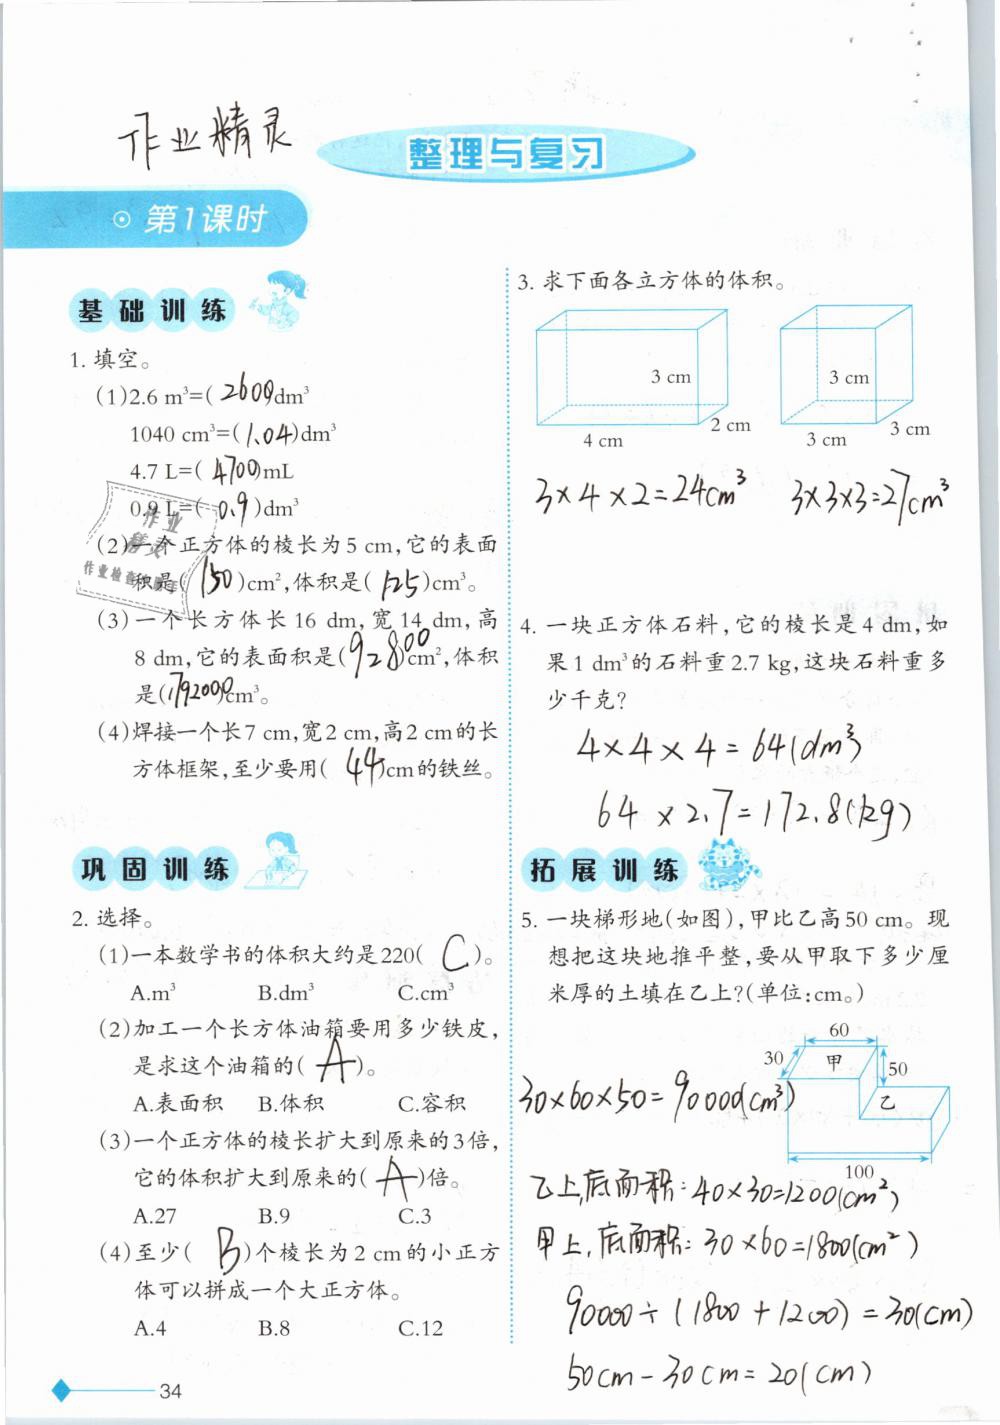 作业精灵
整理与复习
第1课时
基础训练
1. 填空。
(1)2.6 m³=( 2600 )dm³
1040 cm³=( 1.04 )dm³
4.7 L=( 4700 )mL
0.9 L=( 0.9 )dm³
(2)一个正方体的棱长为5 cm,它的表面
积是( 150 )cm²,体积是( 125 )cm³。
(3)一个长方体长16 dm,宽14 dm,高
8 dm,它的表面积是( 92800 )cm²,体积
是( 1792000 )cm³。
(4)焊接一个长7 cm,宽2 cm,高2 cm的长
方体框架,至少要用( 44 )cm的铁丝。
巩固训练
2. 选择。
(1)一本数学书的体积大约是220( C )。
A.m³ B.dm³ C.cm³
(2)加工一个长方体油箱要用多少铁皮,
是求这个油箱的( A )。
A.表面积 B.体积 C.容积
(3)一个正方体的棱长扩大到原来的3倍,
它的体积扩大到原来的( A )倍。
A.27 B.9 C.3
(4)至少( B )个棱长为2 cm的小正方
体可以拼成一个大正方体。
A.4 B.8 C.12
34
3. 求下面各立方体的体积。
3 cm 2 cm 4 cm
3 cm 3 cm 3 cm
3×4×2=24cm³ 3×3×3=27cm³
4. 一块正方体石料,它的棱长是4 dm,如
果1 dm³的石料重2.7 kg,这块石料重多
少千克?
4×4×4=64(dm³)
64×2.7=172.8(kg)
拓展训练
5. 一块梯形地(如图),甲比乙高50 cm。现
想把这块地推平整,要从甲取下多少厘
米厚的土填在乙上?(单位:cm。)
60
30 甲 50
乙
100
30×60×50=90000(cm³)
乙上底面积:40×30=1200(cm²)
甲上底面积:30×60=1800(cm²)
90000÷(1800+1200)=30(cm)
50cm-30cm=20(cm)
作业
精灵